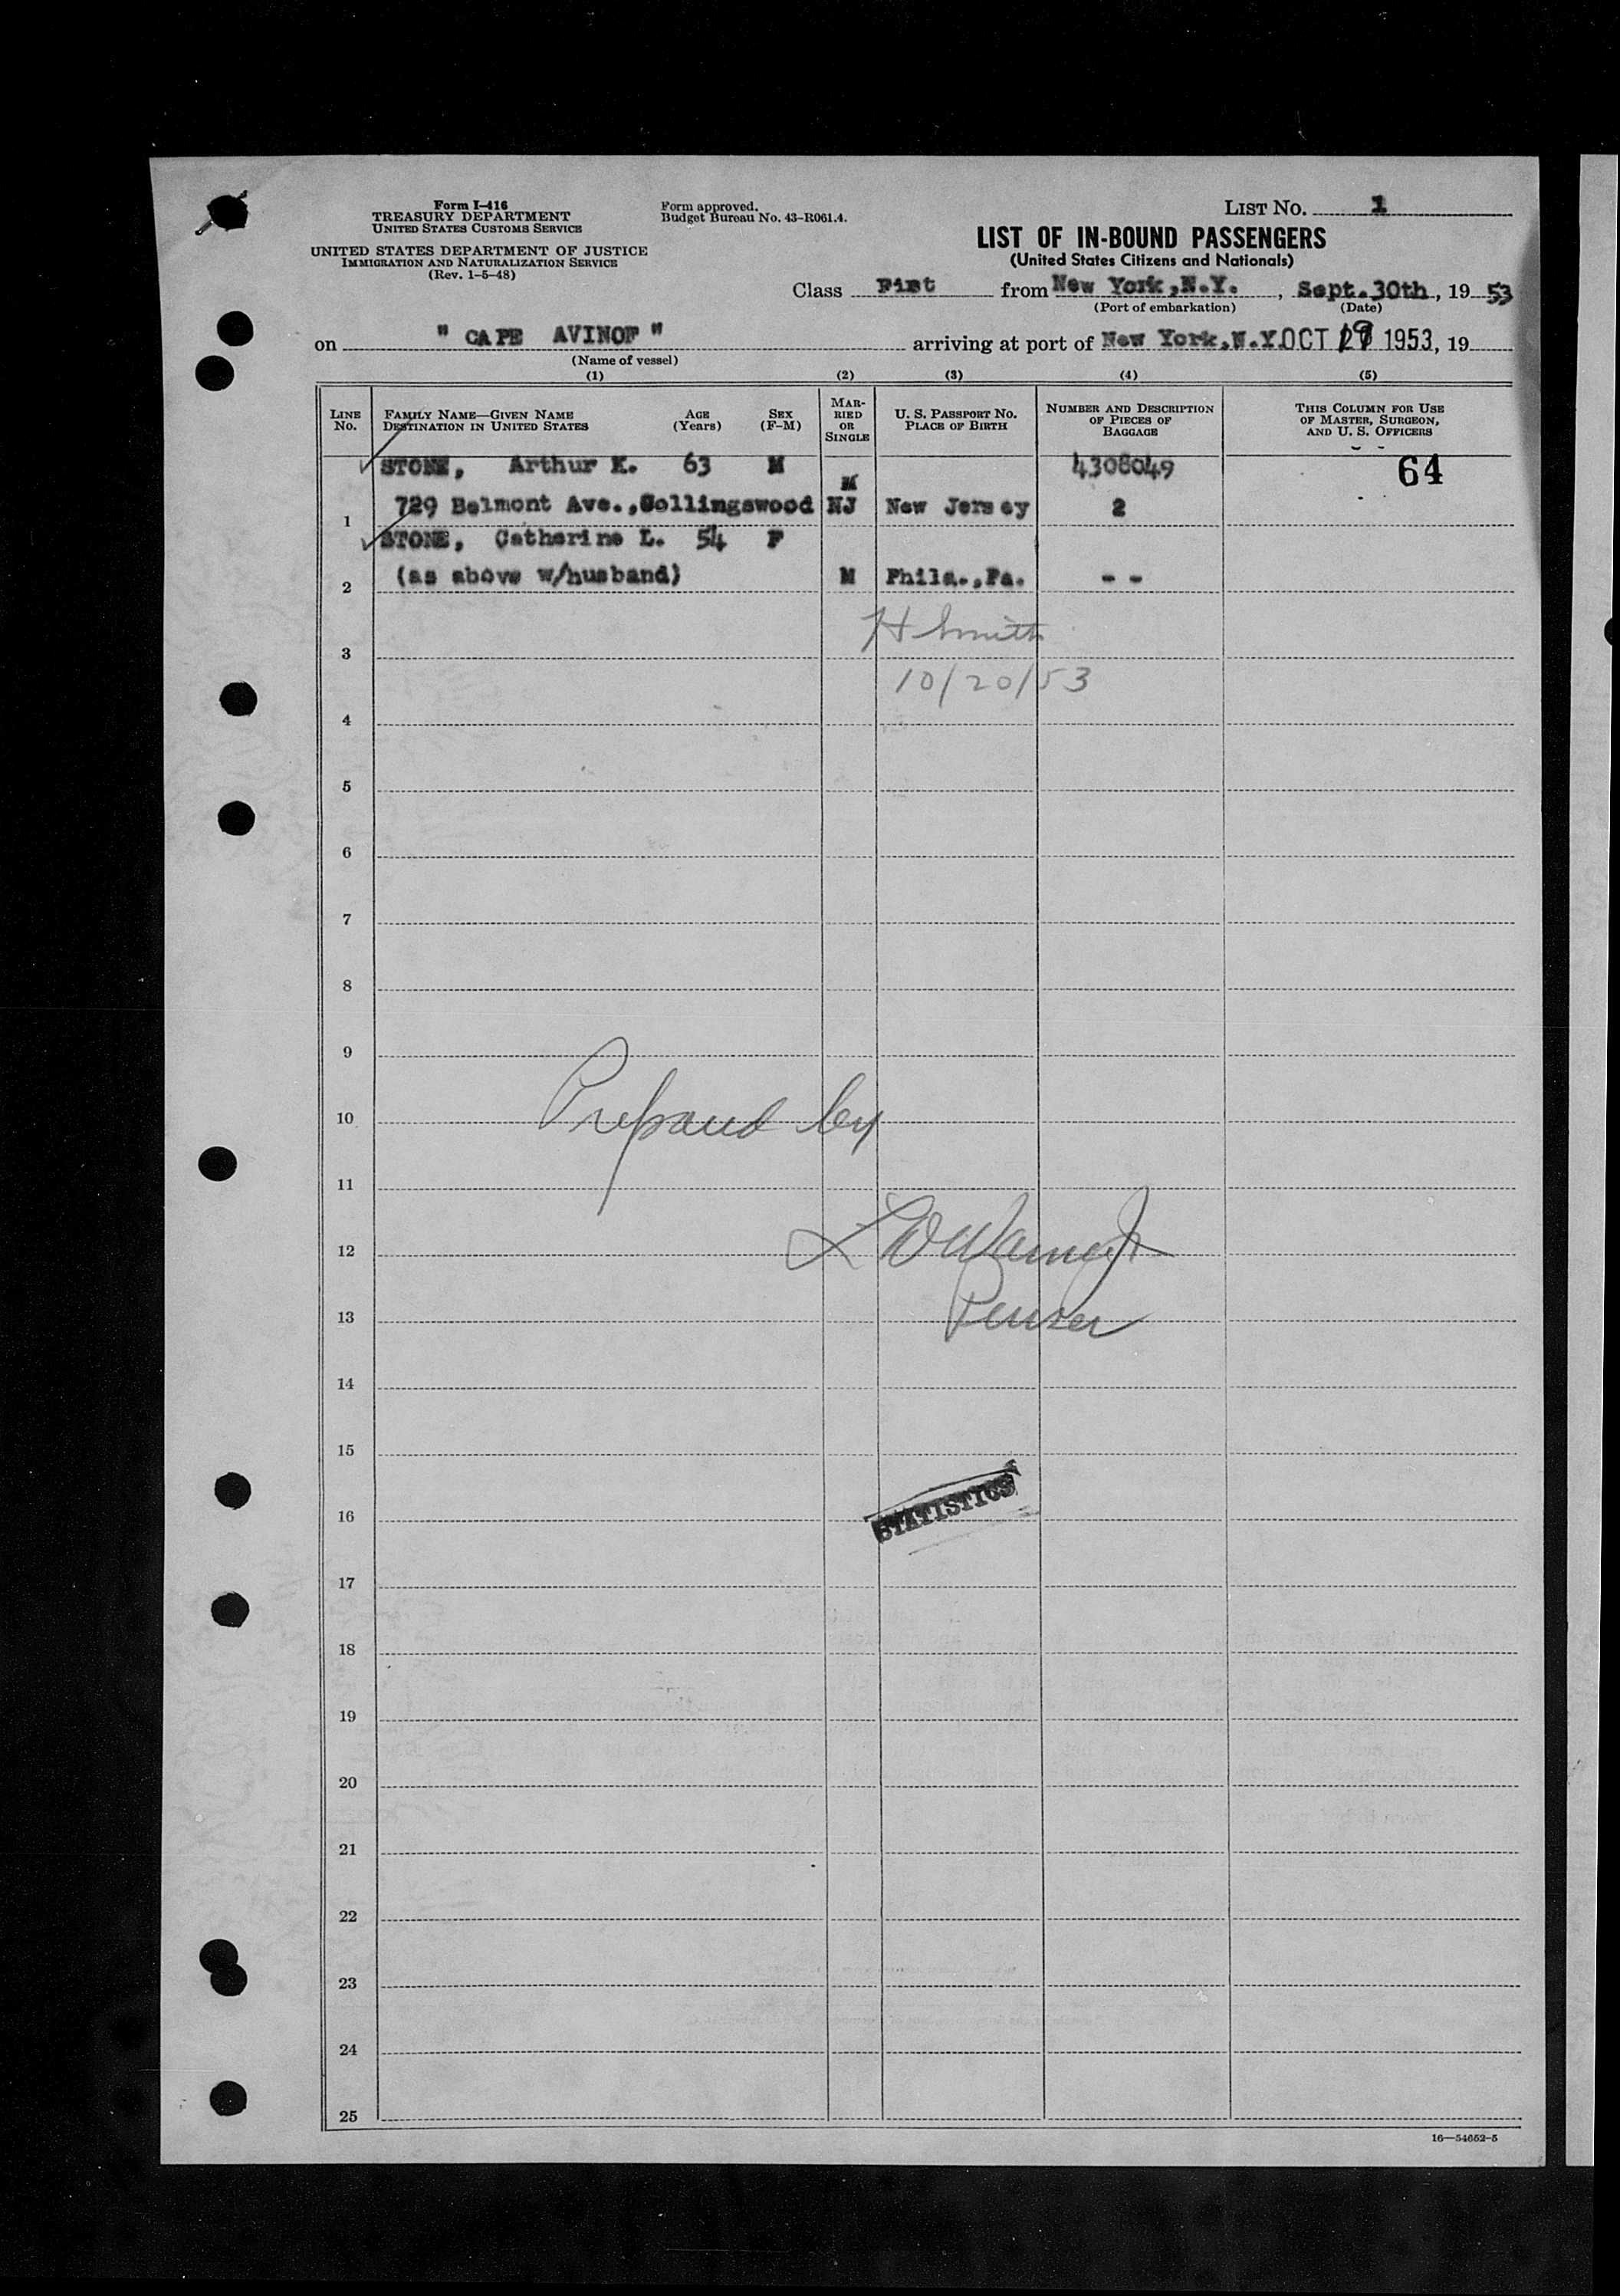 Form I-416
TREASURY DEPARTMENT
UNITED STATES CUSTOMS SERVICE
UNITED STATES DEPARTMENT OF JUSTICE
IMMIGRATION AND NATURALIZATION SERVICE
(Rev. 1-5-48)
Form approved.
Budget Bureau No. 43-R061.4.
LIST NO. 1
LIST OF IN-BOUND PASSENGERS
(United States Citizens and Nationals)
Class First from New York, N.Y. , Sept. 30th, 19 53
(Port of embarkation) (Date)
on " CAPE AVINOF " arriving at port of New York, N.Y. OCT 1953, 19
(Name of vessel)
(1) (2) (3) (4) (5)
LINE No.
FAMILY NAME—GIVEN NAME
DESTINATION IN UNITED STATES
AGE (Years)
SEX (F-M)
MARRIED OR SINGLE
U. S. PASSPORT NO.
PLACE OF BIRTH
NUMBER AND DESCRIPTION OF PIECES OF BAGGAGE
THIS COLUMN FOR USE OF MASTER, SURGEON, AND U. S. OFFICERS
STONE, Arthur K. 63 M M 4308049 64
1 729 Belmont Ave., Collingswood NJ New Jersey 2
STONE, Catherine L. 54 F
2 (as above w/husband) M Phila., Pa. - -
H Smith
3
10/20/53
4
5
6
7
8
9
10 Prepared by
11
12
13 Purser
14
15
16 STATISTICS
17
18
19
20
21
22
23
24
25
16—54652-5